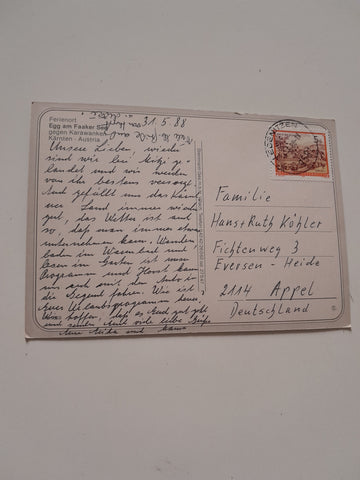 Ferienort
Egg am Faaker See
gegen Karawanken
Kärnten - Austria
31.5.88
Unsere Lieben, wieder
sind wir bei Mitzi ge-
landet und wir werden
von ihr bestens versorgt.
Auch gefällt uns das Kärnt-
ner Land immer wieder
gut, das Wetter ist auch
so, daß man immer etwas
unternehmen kann. Wandern,
baden im Wasser und
lesen im Garten ist unser
Programm und Horst kann
uns auch mit dem Auto in
die Gegend fahren. Wie ist
Euer Urlaubsprogramm heuer.
Wir hoffen, daß es Euch gut geht
und senden Euch viele liebe Grüße
Eure
Familie
Hans+Ruth Köhler
Fichtenweg 3
Eversen - Heide
2114 Appel
Deutschland